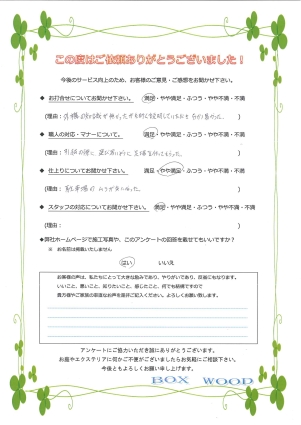 この度はご依頼ありがとうございました！
今後のサービス向上のため、お客様のご意見・ご感想をお聞かせ下さい。
◆ お打合せについてお聞かせ下さい。 満足・やや満足・ふつう・やや不満・不満
（理由： ）
◆ 職人の対応・マナーについて。 満足・やや満足・ふつう・やや不満・不満
（理由： ）
◆ 仕上りについてお聞かせ下さい。 満足・やや満足・ふつう・やや不満・不満
（理由： ）
◆ スタッフの対応についてお聞かせ下さい。 満足・やや満足・ふつう・やや不満・不満
（理由： ）
◆弊社ホームページで施工写真や、このアンケートの回答を載せてもいいですか？
※ お名前は掲載いたしません
はい いいえ
お客様の声は、私たちにとって大きな励みであり、やりがいであり、反省にもなります。
いいこと、悪いこと、知りたいこと、感じたこと、何でも結構ですので
貴方様やご家族の率直なお声を是非ご記入ください。よろしくお願い致します。
アンケートにご協力いただき誠にありがとうございます。
お庭やエクステリアに何かご不便がございましたらお気軽にご相談下さい。
今後ともよろしくお願い申し上げます。
BOX WOOD